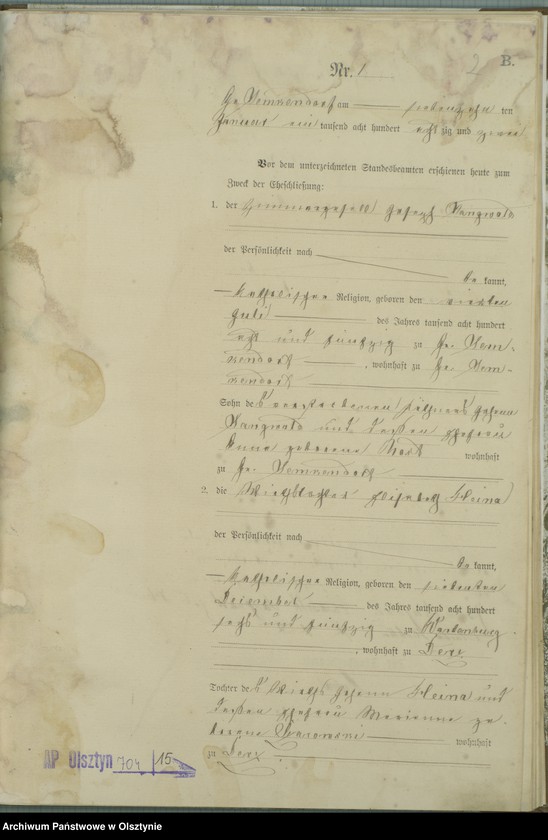 Nr. 1
2
B.
Gr. Lemkendorf am siebenzehn ten
Januar ein tausend acht hundert acht zig und zwei
Vor dem unterzeichneten Standesbeamten erschienen heute zum
Zweck der Eheschließung:
1. der Zimmergesell Joseph
der Persönlichkeit nach
be kannt,
katholischer Religion, geboren den vierten
Juli des Jahres tausend acht hundert
acht und fünfzig zu Gr. Lem-
kendorf, wohnhaft zu Gr. Lem-
kendorf
Sohn des verstorbenen Käthners Johann
und dessen Ehefrau
Anna geborene wohnhaft
zu Gr. Lemkendorf
2. die Wirthstochter Elisabeth Heina
der Persönlichkeit nach
be kannt,
katholischer Religion, geboren den siebenten
Dezember des Jahres tausend acht hundert
sechs und fünfzig zu Wartenburg
, wohnhaft zu Derz
Tochter des Wirths Johann Heina und
dessen Ehefrau Marianne ge-
borene wohnhaft
zu Derz
AP Olsztyn 704 15
Archiwum Państwowe w Olsztynie